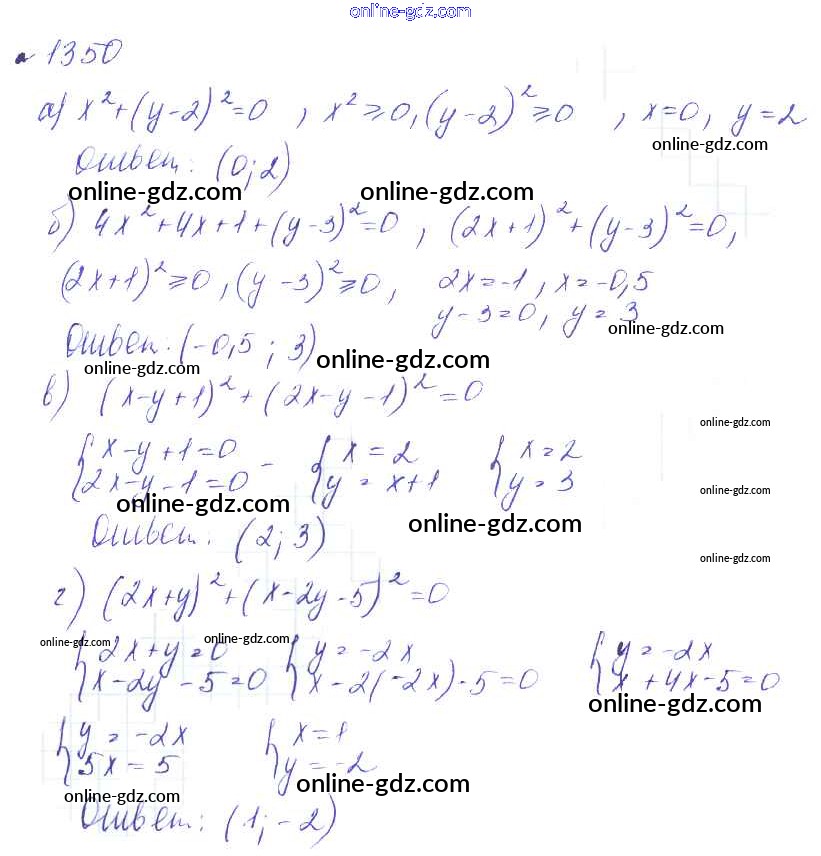 online-gdz.com
№ 1350
а) x²+(y-2)²=0 , x²≥0, (y-2)²≥0 , x=0, y=2
online-gdz.com
Ответ: (0;2)
online-gdz.com online-gdz.com
б) 4x²+4x+1+(y-3)²=0 , (2x+1)²+(y-3)²=0,
(2x+1)²≥0, (y-3)²≥0, 2x=-1, x=-0,5
y-3=0, y=3
online-gdz.com
Ответ: (-0,5 ; 3)
online-gdz.com online-gdz.com
в) (x-y+1)²+(2x-y-1)²=0
online-gdz.com
{x-y+1=0 - {x=2 {x=2
{2x-y-1=0 {y=x+1 {y=3
online-gdz.com
online-gdz.com online-gdz.com
Ответ. (2; 3)
online-gdz.com
г) (2x+y)²+(x-2y-5)²=0
online-gdz.com online-gdz.com
{2x+y=0 {y=-2x {y=-2x
{x-2y-5=0 {x-2(-2x)-5=0 {x+4x-5=0
online-gdz.com
{y=-2x {x=1
{5x=5 {y=-2
online-gdz.com online-gdz.com
Ответ: (1; -2)